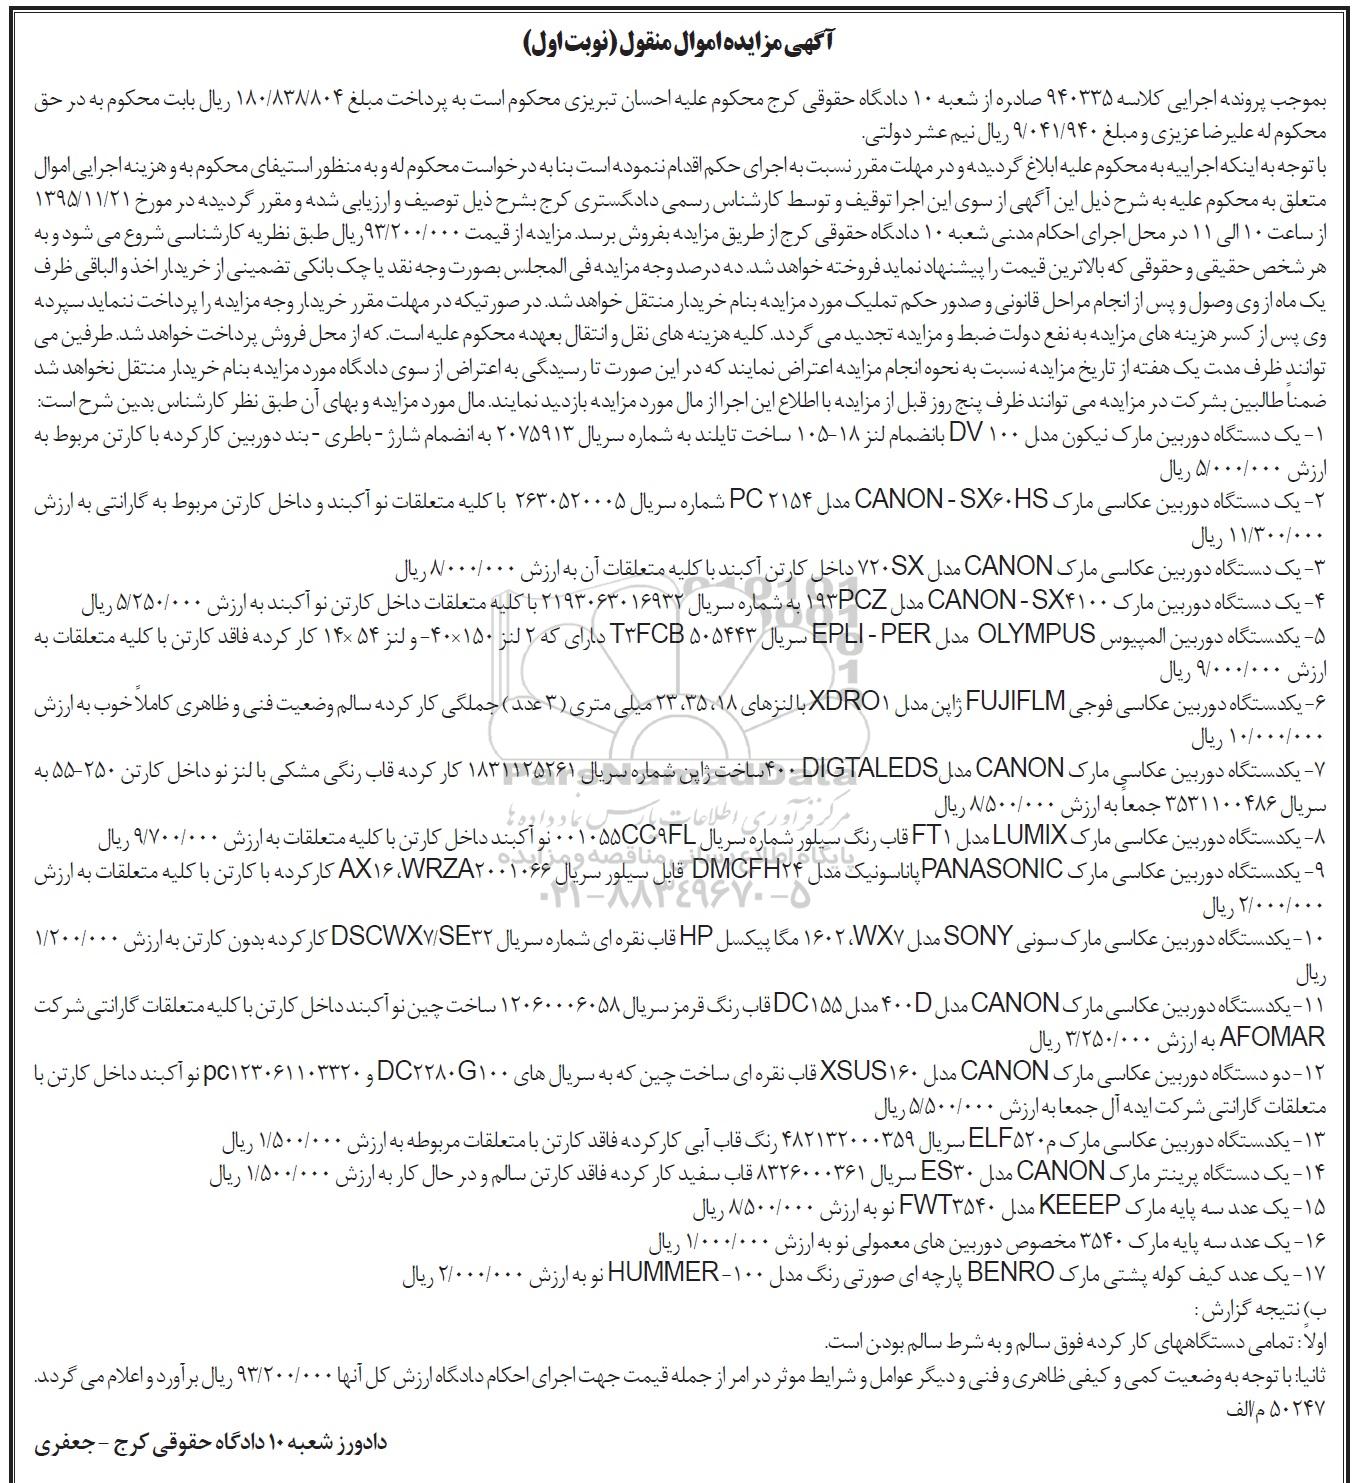 آگهی مزایده اموال منقول (نوبت اول)
بموجب پرونده اجرایی کلاسه ۹۴۰۳۳۵ صادره از شعبه ۱۰ دادگاه حقوقی کرج محکوم علیه احسان تبریزی محکوم است به پرداخت مبلغ ۱۸۰/۸۳۸/۸۰۴ ریال بابت محکوم به در حق
محکوم له علیرضا عزیزی و مبلغ ۹/۰۴۱/۹۴۰ ریال نیم عشر دولتی.
با توجه به اینکه اجراییه به محکوم علیه ابلاغ گردیده و در مهلت مقرر نسبت به اجرای حکم اقدام ننموده است بنا به درخواست محکوم له و به منظور استیفای محکوم به و هزینه اجرایی اموال
متعلق به محکوم علیه به شرح ذیل این آگهی از سوی این اجرا توقیف و توسط کارشناس رسمی دادگستری کرج بشرح ذیل توصیف و ارزیابی شده و مقرر گردیده در مورخ ۱۳۹۵/۱۱/۲۱
از ساعت ۱۰ الی ۱۱ در محل اجرای احکام مدنی شعبه ۱۰ دادگاه حقوقی کرج از طریق مزایده بفروش برسد. مزایده از قیمت ۹۳/۲۰۰/۰۰۰ریال طبق نظریه کارشناسی شروع می شود و به
هر شخص حقیقی و حقوقی که بالاترین قیمت را پیشنهاد نماید فروخته خواهد شد. ده درصد وجه مزایده فی المجلس بصورت وجه نقد یا چک بانکی تضمینی از خریدار اخذ و الباقی ظرف
یک ماه از وی وصول و پس از انجام مراحل قانونی و صدور حکم تملیک مورد مزایده بنام خریدار منتقل خواهد شد. در صورتیکه در مهلت مقرر خریدار وجه مزایده را پرداخت ننماید سپرده
وی پس از کسر هزینه های مزایده به نفع دولت ضبط و مزایده تجدید می گردد. کلیه هزینه های نقل و انتقال بعهده محکوم علیه است. که از محل فروش پرداخت خواهد شد. طرفین می
توانند ظرف مدت یک هفته از تاریخ مزایده نسبت به نحوه انجام مزایده اعتراض نمایند که در این صورت تا رسیدگی به اعتراض از سوی دادگاه مورد مزایده بنام خریدار منتقل نخواهد شد
ضمناً طالبین بشرکت در مزایده می توانند ظرف پنج روز قبل از مزایده با اطلاع این اجرا از مال مورد مزایده بازدید نمایند. مال مورد مزایده و بهای آن طبق نظر کارشناس بدین شرح است:
۱- یک دستگاه دوربین مارک نیکون مدل DV ۱۰۰ بانضمام لنز ۱۸-۱۰۵ ساخت تایلند به شماره سریال ۲۰۷۵۹۱۳ به انضمام شارژ - باطری - بند دوربین کارکرده با کارتن مربوط به
ارزش ۵/۰۰۰/۰۰۰ ریال
۲- یک دستگاه دوربین عکاسی مارک CANON - SX۶۰HS مدل PC ۲۱۵۴ شماره سریال ۲۶۳۰۵۲۰۰۰۵ با کلیه متعلقات نو آکبند و داخل کارتن مربوط به گارانتی به ارزش
۱۱/۳۰۰/۰۰۰ ریال
۳- یک دستگاه دوربین عکاسی مارک CANON مدل ۷۲۰SX داخل کارتن آکبند با کلیه متعلقات آن به ارزش ۸/۰۰۰/۰۰۰ ریال
۴- یک دستگاه دوربین مارک CANON - SX۴۱۰۰ مدل ۱۹۳PCZ به شماره سریال ۲۱۹۳۰۶۳۰۱۶۹۳۲ با کلیه متعلقات داخل کارتن نو آکبند به ارزش ۵/۲۵۰/۰۰۰ ریال
۵- یکدستگاه دوربین المپیوس OLYMPUS مدل EPLI - PER سریال T۳FCB ۵۰۵۴۴۳ دارای که ۲ لنز ۱۵۰×۴۰- و لنز ۵۴ ×۱۴ کار کرده فاقد کارتن با کلیه متعلقات به
ارزش ۹/۰۰۰/۰۰۰ ریال
۶- یکدستگاه دوربین عکاسی فوجی FUJIFLM ژاپن مدل XDRO۱ با لنزهای ۱۸، ۳۵، ۲۳ میلی متری (۳ عدد) جملگی کار کرده سالم وضعیت فنی و ظاهری کاملاً خوب به ارزش
۱۰/۰۰۰/۰۰۰ ریال
۷- یکدستگاه دوربین عکاسی مارک CANON مدل۴۰۰ DIGTALEDS ساخت ژاپن شماره سریال ۱۸۳۱۱۲۵۲۶۱ کار کرده قاب رنگی مشکی با لنز نو داخل کارتن ۲۵۰-۵۵ به
سریال ۳۵۳۱۱۰۰۴۸۶ جمعاً به ارزش ۸/۵۰۰/۰۰۰ ریال
۸- یکدستگاه دوربین عکاسی مارک LUMIX مدل FT۱ قاب رنگ سیلور شماره سریال ۰۰۱۰۵۵CC۹FL نو آکبند داخل کارتن با کلیه متعلقات به ارزش ۹/۷۰۰/۰۰۰ ریال
۹- یکدستگاه دوربین عکاسی مارک PANASONICپاناسونیک مدل DMCFH۲۴ قابل سیلور سریال AX۱۶ ،WRZA۲۰۰۱۰۶۶ کارکرده با کارتن با کلیه متعلقات به ارزش
۲/۰۰۰/۰۰۰ ریال
۱۰- یکدستگاه دوربین عکاسی مارک سونی SONY مدل WX۷، ۱۶۰۲ مگا پیکسل HP قاب نقره ای شماره سریال DSCWX۷/SE۳۲ کارکرده بدون کارتن به ارزش ۱/۲۰۰/۰۰۰
ریال
۱۱- یکدستگاه دوربین عکاسی مارک CANON مدل ۴۰۰D مدل DC۱۵۵ قاب رنگ قرمز سریال ۱۲۰۶۰۰۰۶۰۵۸ ساخت چین نو آکبند داخل کارتن با کلیه متعلقات گارانتی شرکت
AFOMAR به ارزش ۳/۲۵۰/۰۰۰ ریال
۱۲- دو دستگاه دوربین عکاسی مارک CANON مدل XSUS۱۶۰ قاب نقره ای ساخت چین که به سریال های DC۲۲۸۰G۱۰۰ و pc۱۲۳۰۶۱۱۰۳۳۲۰ نو آکبند داخل کارتن با
متعلقات گارانتی شرکت ایده آل جمعا به ارزش ۵/۵۰۰/۰۰۰ ریال
۱۳- یکدستگاه دوربین عکاسی مارک مELF۵۲۰ سریال ۴۸۲۱۳۲۰۰۰۳۵۹ رنگ قاب آبی کارکرده فاقد کارتن با متعلقات مربوطه به ارزش ۱/۵۰۰/۰۰۰ ریال
۱۴- یک دستگاه پرینتر مارک CANON مدل ES۳۰ سریال ۸۳۲۶۰۰۰۳۶۱ قاب سفید کار کرده فاقد کارتن سالم و در حال کار به ارزش ۱/۵۰۰/۰۰۰ ریال
۱۵- یک عدد سه پایه مارک KEEEP مدل FWT۳۵۴۰ نو به ارزش ۸/۵۰۰/۰۰۰ ریال
۱۶- یک عدد سه پایه مارک ۳۵۴۰ مخصوص دوربین های معمولی نو به ارزش ۱/۰۰۰/۰۰۰ ریال
۱۷- یک عدد کیف کوله پشتی مارک BENRO پارچه ای صورتی رنگ مدل HUMMER-۱۰۰ نو به ارزش ۲/۰۰۰/۰۰۰ ریال
ب) نتیجه گزارش :
اولاً : تمامی دستگاههای کار کرده فوق سالم و به شرط سالم بودن است.
ثانیا: با توجه به وضعیت کمی و کیفی ظاهری و فنی و دیگر عوامل و شرایط موثر در امر از جمله قیمت جهت اجرای احکام دادگاه ارزش کل آنها ۹۳/۲۰۰/۰۰۰ ریال برآورد و اعلام می گردد.
۵۰۲۴۷ م/الف
دادورز شعبه ۱۰ دادگاه حقوقی کرج - جعفری
ParsNamadData
مرکز فرآوری اطلاعات پارس نماد داده ها
پایگاه اطلاع رسانی مناقصه و مزایده
۰۲۱-۸۸۳۴۹۶۷۰-۵